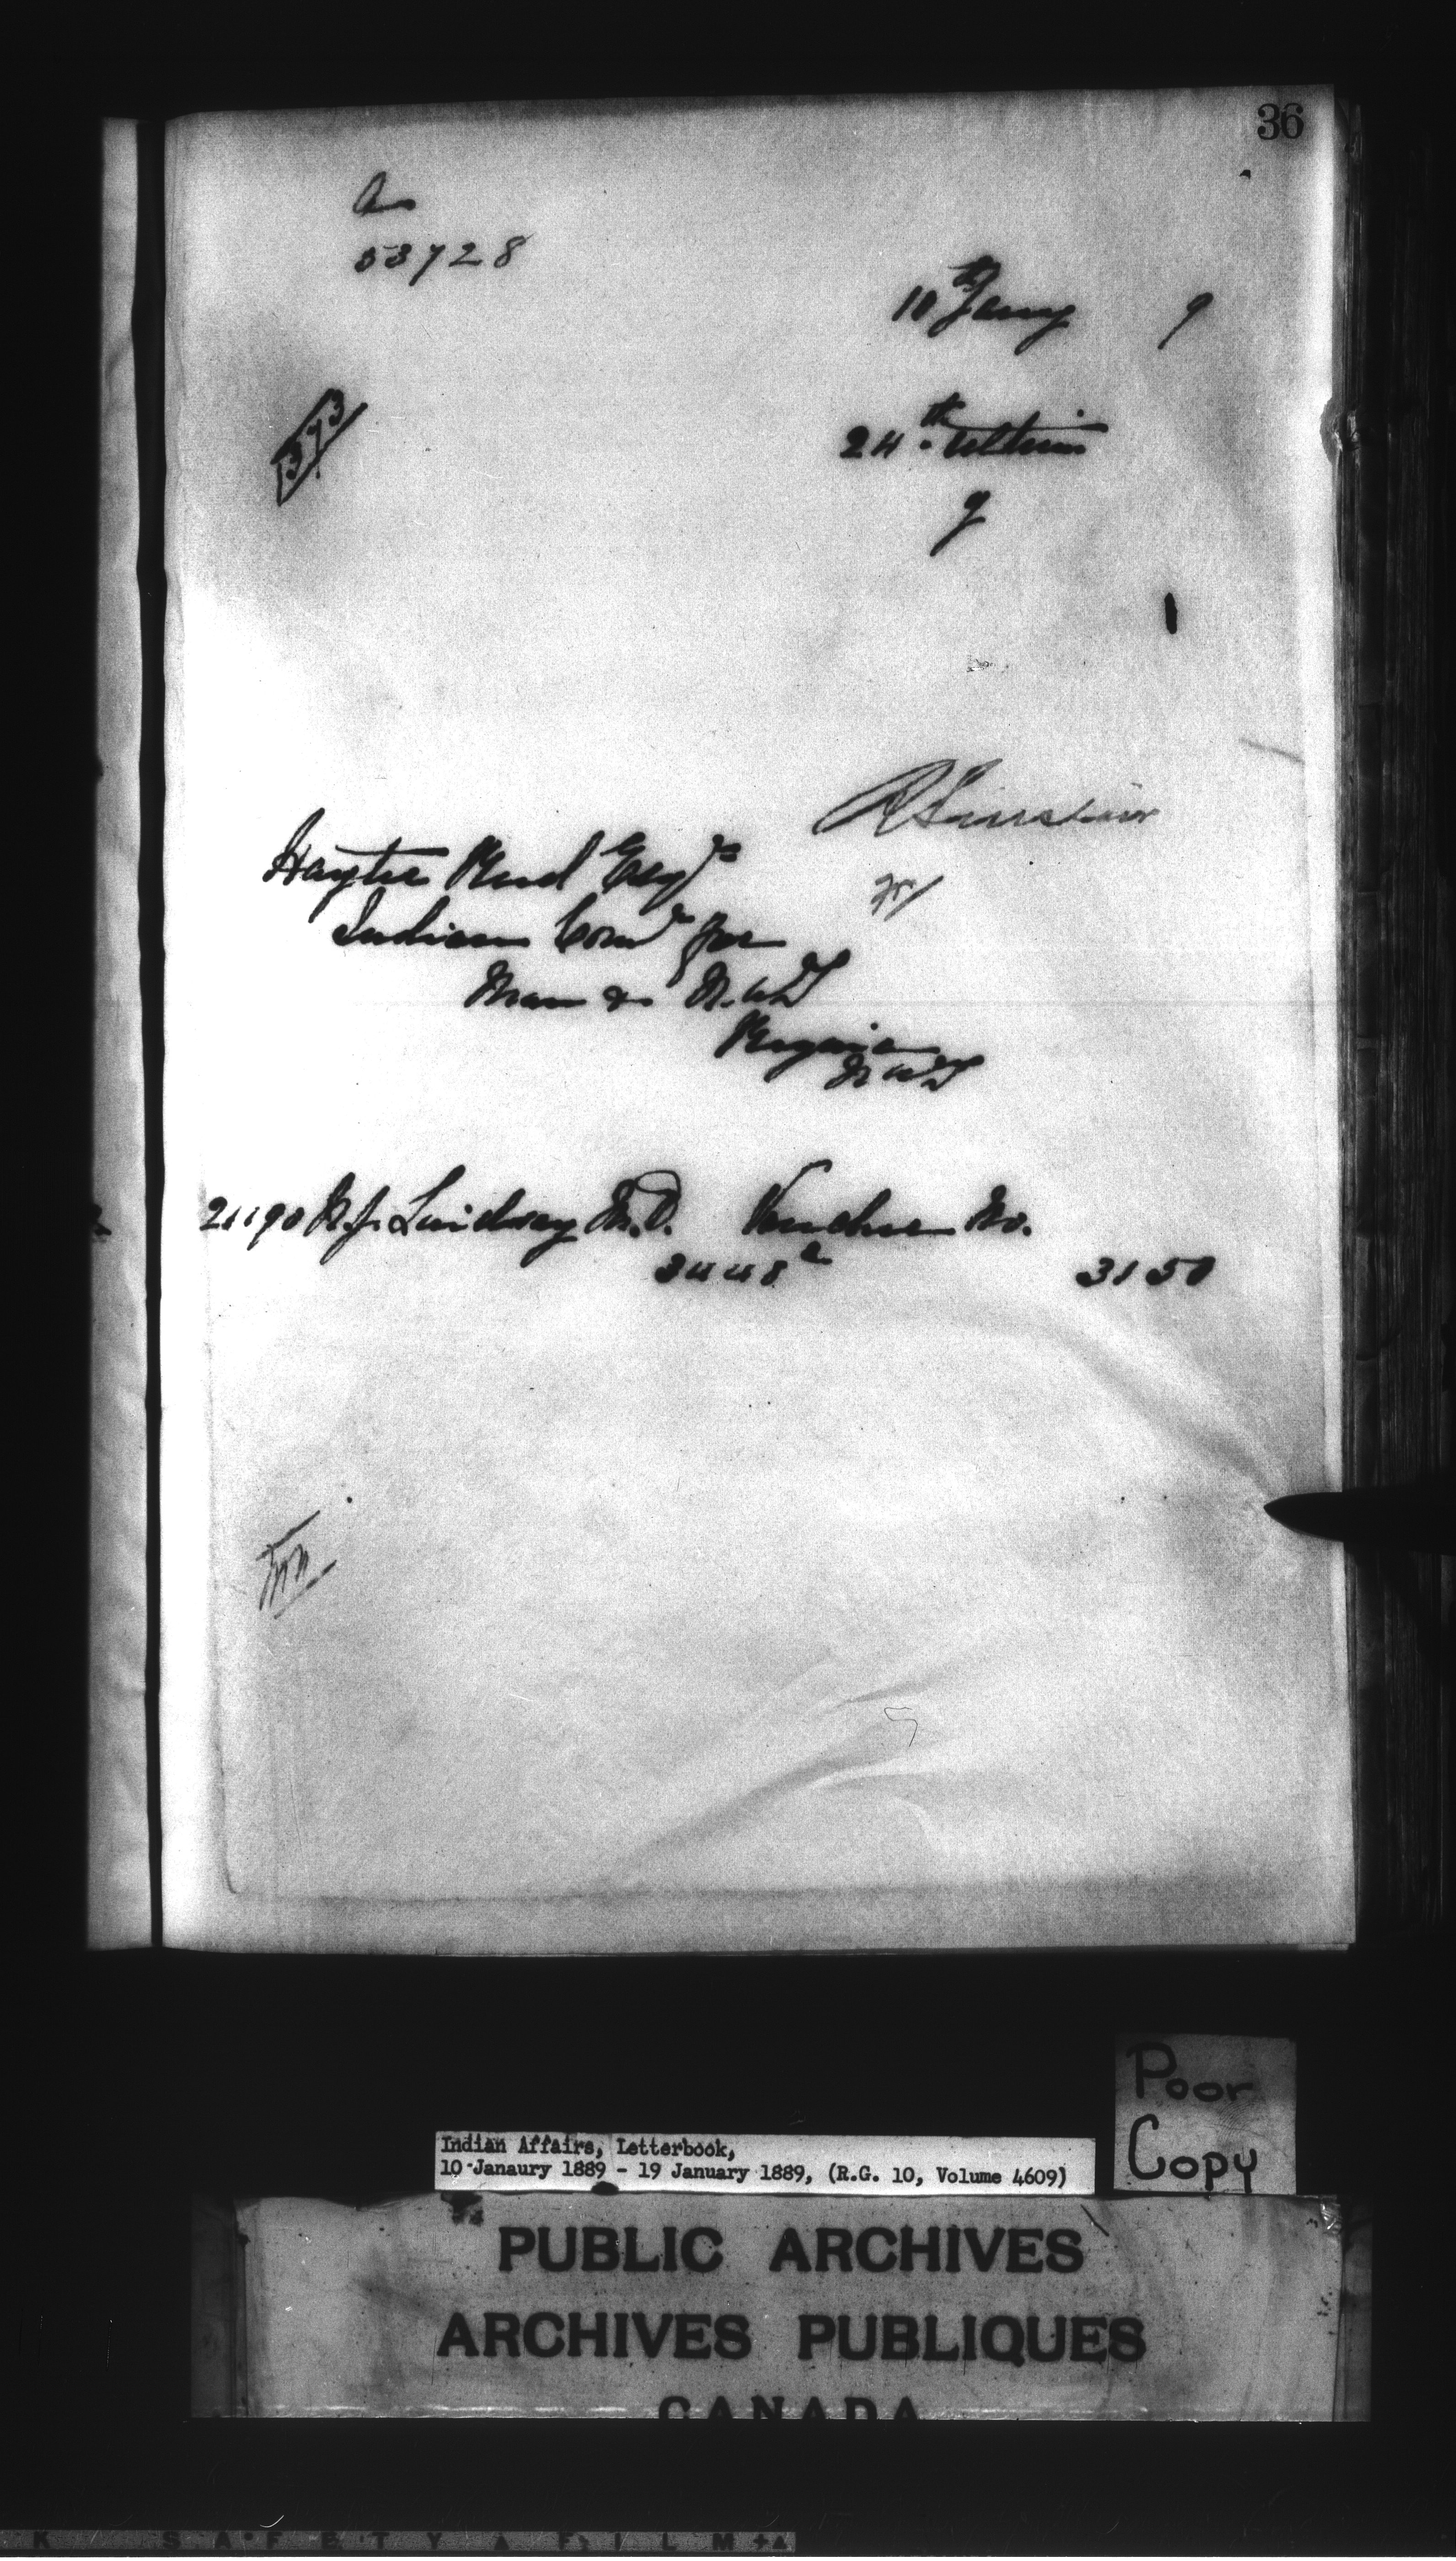 36
a
53728
10th Jany 9
373
24th ultimo
9
R Sinclair
Hayter Reed Esqre
Indian Comr for
Man & N.W.T
Regina
N W T
21190 N.J. Lindsay M.D. Voucher No.
3448a 3150
Poor
Copy
Indian Affairs, Letterbook,
10 Janaury 1889 - 19 January 1889, (R.G. 10, Volume 4609)
PUBLIC ARCHIVES
ARCHIVES PUBLIQUES
CANADA
K SAFETY FILM